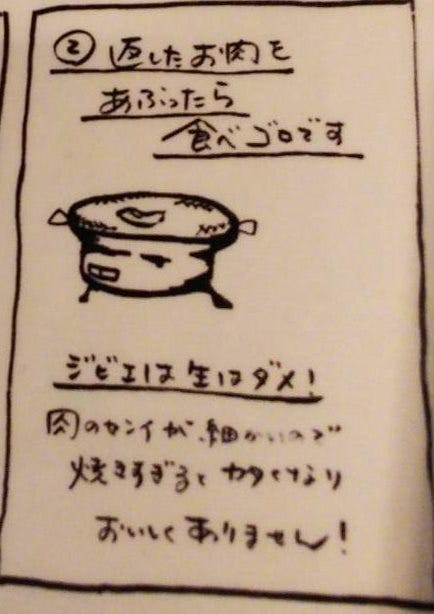 ② 返したお肉を
あぶったら
食べゴロです
ジビエは生はダメ!
肉のセンイが細かいので
焼きすぎるとカタくなり
おいしくありません!